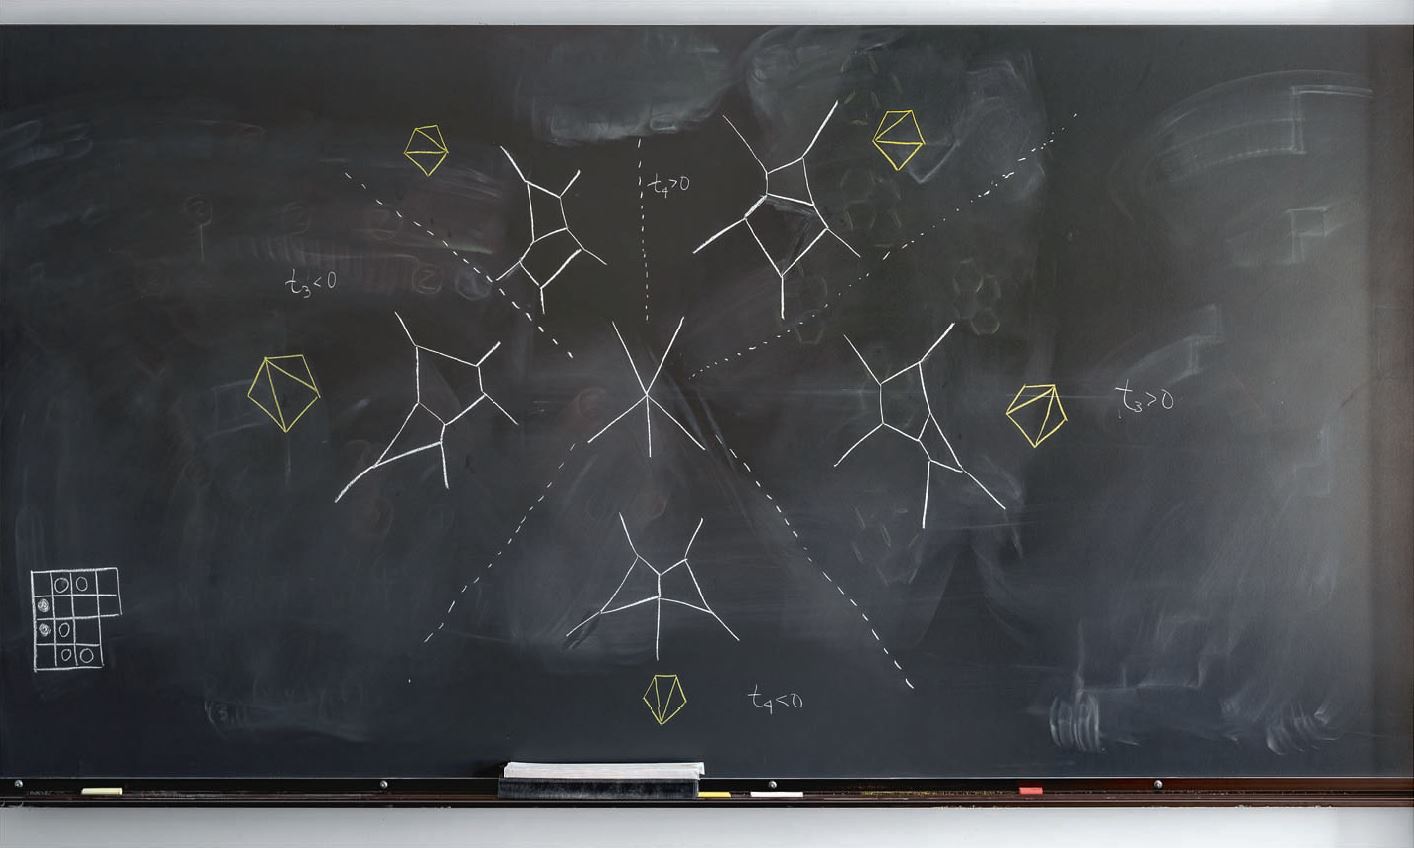 t₄>0
t₃<0
t₃>0
t₄<0